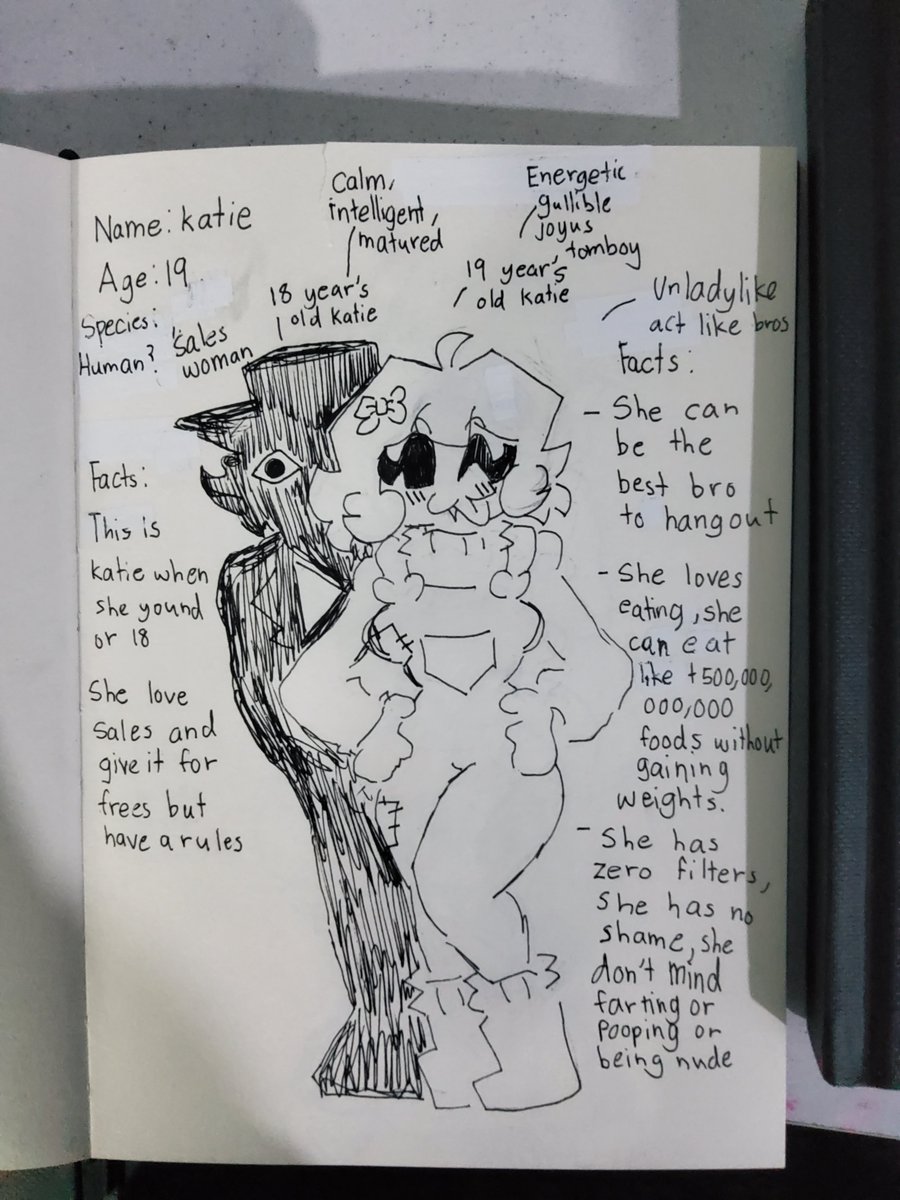 Name: katie
Age: 19
Species:
Human?
sales
woman
Calm,
intelligent,
matured
18 year's
old katie
Energetic
gullible
joyus
tomboy
19 year's
old katie
Unladylike
act like bros
Facts:
This is
katie when
she yound
or 18
She love
sales and
give it for
frees but
have a rules
Facts:
- She can
be the
best bro
to hangout
- She loves
eating, she
can eat
like +500,000,
000,000
foods without
gaining
weights.
- She has
zero filters,
she has no
shame, she
don't mind
farting or
pooping or
being nude